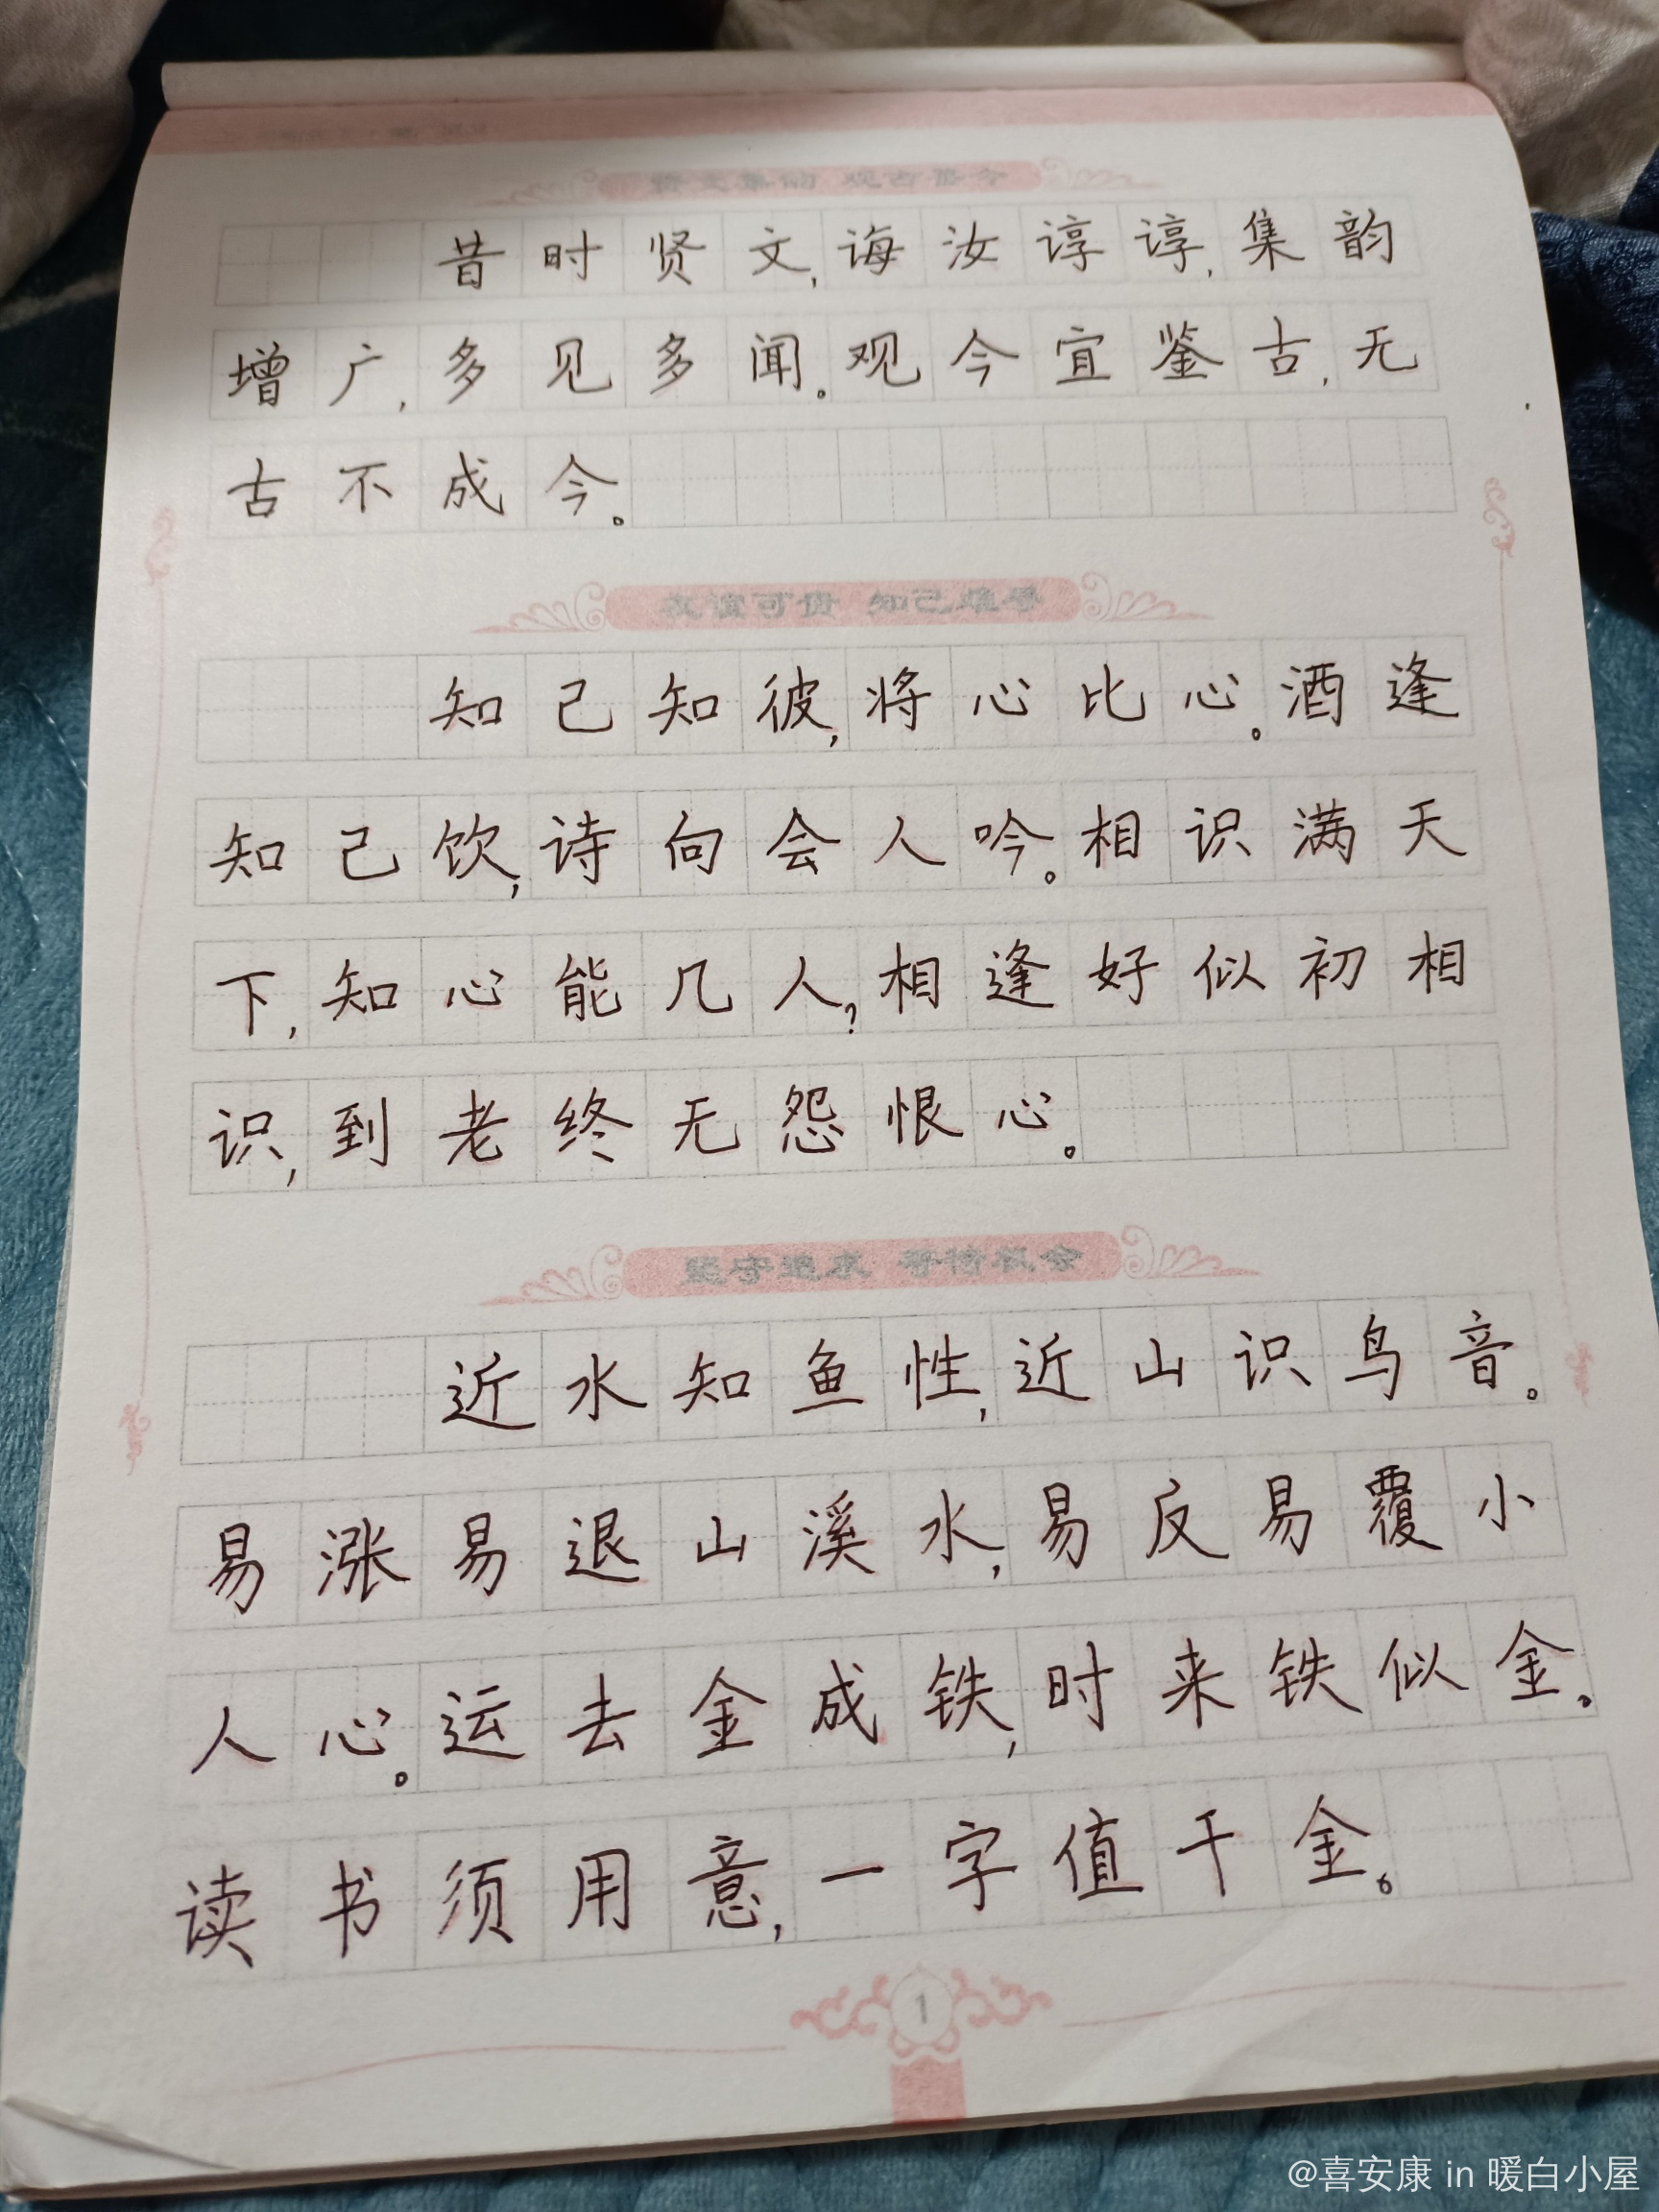 贤文集韵 观古鉴今
昔时贤文,诲汝谆谆,集韵
增广,多见多闻。观今宜鉴古,无
古不成今。
友谊可贵 知己难寻
知己知彼,将心比心。酒逢
知己饮,诗向会人吟。相识满天
下,知心能几人?相逢好似初相
识,到老终无怨恨心。
坚守追求 等待机会
近水知鱼性,近山识鸟音。
易涨易退山溪水,易反易覆小
人心。运去金成铁,时来铁似金。
读书须用意,一字值千金。
1
@喜安康 in 暖白小屋